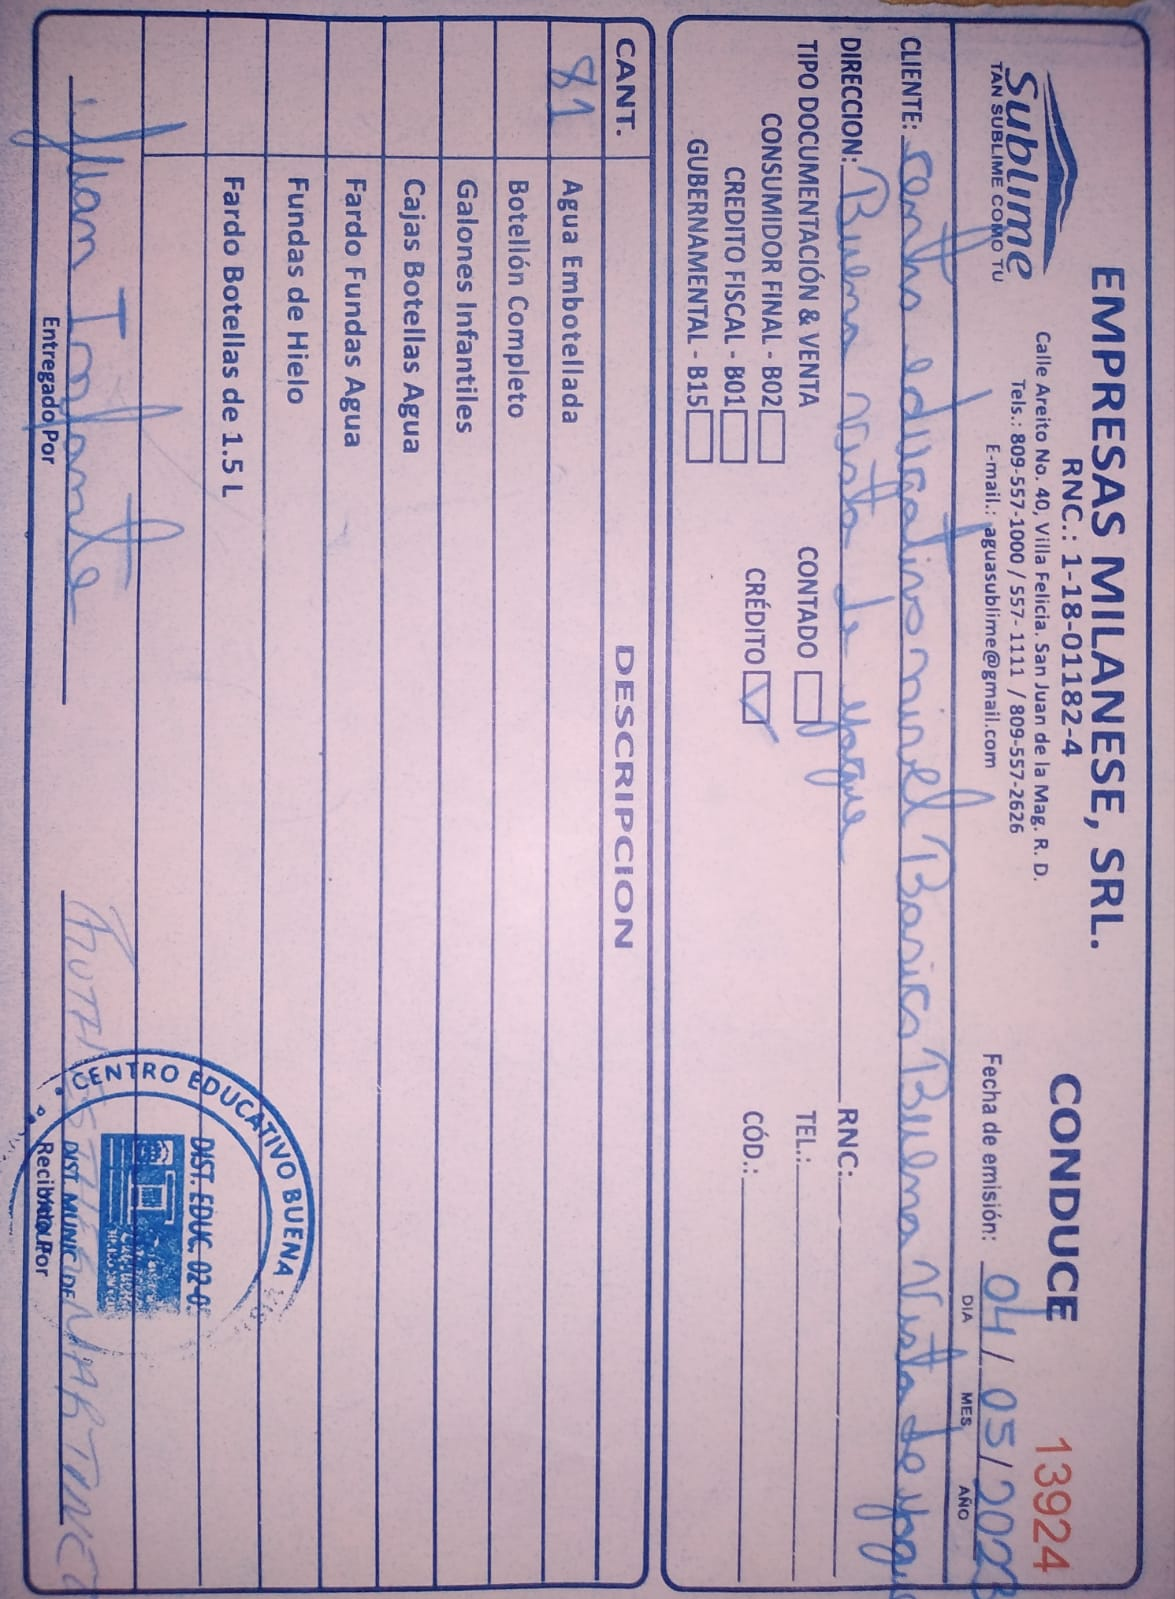 Sublime
TAN SUBLIME COMO TU
EMPRESAS MILANESE, SRL.
RNC.: 1-18-01182-4
Calle Areito No. 40, Villa Felicia. San Juan de la Mag. R. D.
Tels.: 809-557-1000 / 557- 1111 / 809-557-2626
E-mail.: aguasublime@gmail.com
CONDUCE
13924
Fecha de emisión: 04 / 05 / 2023
DIA MES AÑO
CLIENTE: centro educativo nivel Basico Buena Vista de yaque
DIRECCION: Buena vista de yaque RNC:
TIPO DOCUMENTACIÓN & VENTA CONTADO TEL.:
CONSUMIDOR FINAL - B02 CRÉDITO CÓD.:
CREDITO FISCAL - B01
GUBERNAMENTAL - B15
CANT. DESCRIPCION
81 Agua Embotellada
Botellón Completo
Galones Infantiles
Cajas Botellas Agua
Fardo Fundas Agua
Fundas de Hielo
Fardo Botellas de 1.5 L
Juan Infante
Entregado Por
Recibido Por
CENTRO EDUCATIVO BUENA
DIST. EDUC. 02-0
DIST. MUNIC. DE